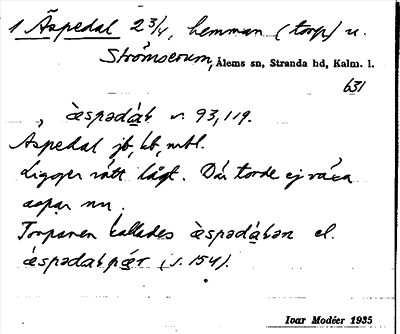 1 Äspedal 2 3/4, hemman (torp) u.
Strömserum, Ålems sn, Stranda hd, Kalm. l.
631
, ̀æspədạk s. 93, 119.
Aspedal jb, kb, mtbl.
Ligger rätt lågt. Där torde ej växa
aspar nu.
Torparen kallades ̀æspədạkən el.
Ivar Modéer 1935